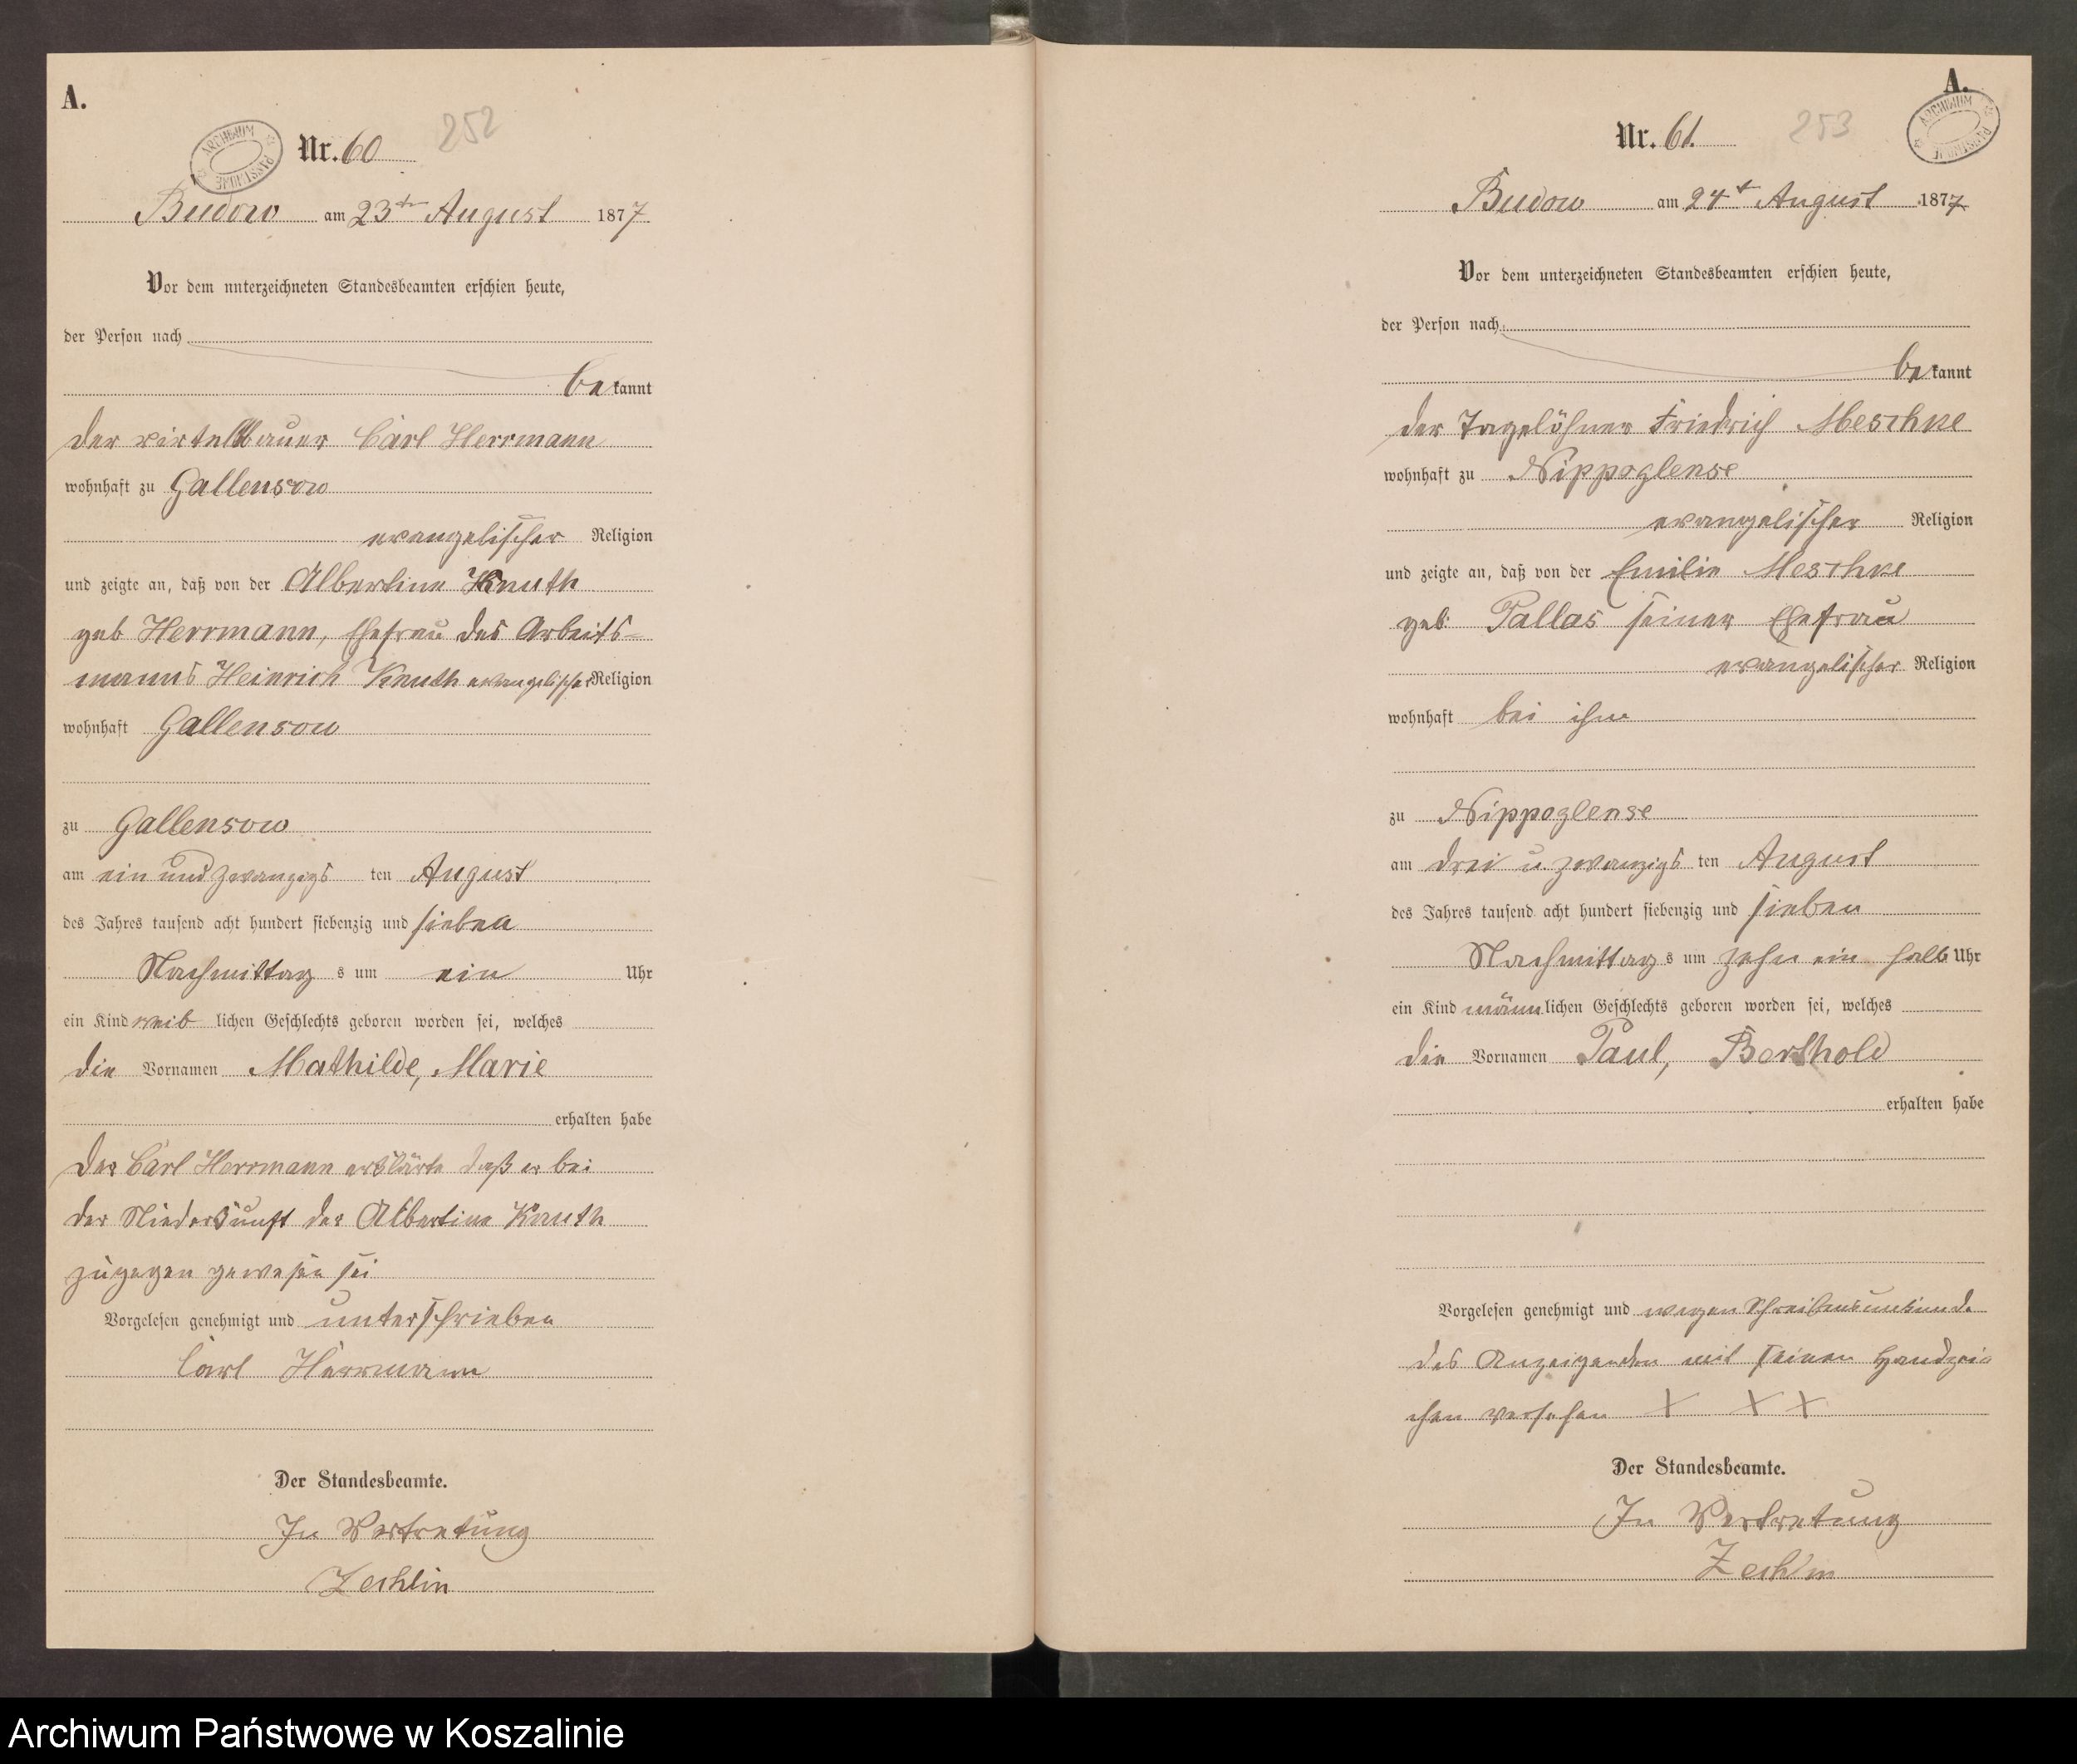 A.
ARCHIWUM PAŃSTWOWE
Nr. 60
252
Budow am 23ten August 1877
Vor dem unterzeichneten Standesbeamten erschien heute,
der Person nach
bekannt
der virtelbauer Carl Herrmann
wohnhaft zu Gallensow
evangelischer Religion
und zeigte an, daß von der Albertine Knuth
geb Herrmann, Ehefrau des Arbeits-
manns Heinrich Knuth evangelischer Religion
wohnhaft Gallensow
zu Gallensow
am ein und zwanzigs ten August
des Jahres tausend acht hundert siebenzig und sieben
Nachmittag s um ein Uhr
ein Kind weib lichen Geschlechts geboren worden sei, welches
die Vornamen Mathilde, Marie
erhalten habe
Der Carl Herrmann erklärte daß er bei
der Niederkunft der Albertine Knuth
zugegen gewesen sei
Vorgelesen genehmigt und unterschrieben
Carl Herrmann
Der Standesbeamte.
In Vertretung
Zechlin
A.
ARCHIWUM PAŃSTWOWE
Nr. 61.
253
Budow am 24t August 1877
Vor dem unterzeichneten Standesbeamten erschien heute,
der Person nach
bekannt
der Tagelöhner Friedrich Meschke
wohnhaft zu Nippoglense
evangelischer Religion
und zeigte an, daß von der Emilie Meschke
geb. Pallas seiner Ehefrau
evangelischer Religion
wohnhaft bei ihm
zu Nippoglense
am drei u zwanzigs ten August
des Jahres tausend acht hundert siebenzig und sieben
Nachmittag s um zehn ein halb Uhr
ein Kind männlichen Geschlechts geboren worden sei, welches
die Vornamen Paul, Berthold
erhalten habe
Vorgelesen genehmigt und wegen Schreibensunkunde
des Anzeigenden mit seinen Handzei-
chen versehen X X X
Der Standesbeamte.
In Vertretung
Zechlin
Archiwum Państwowe w Koszalinie